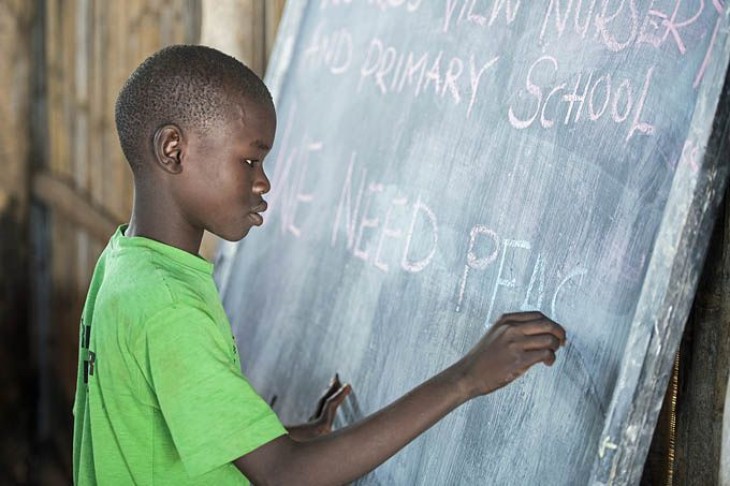 VIEW NURSERY
AND PRIMARY SCHOOL
WE NEED PEAC